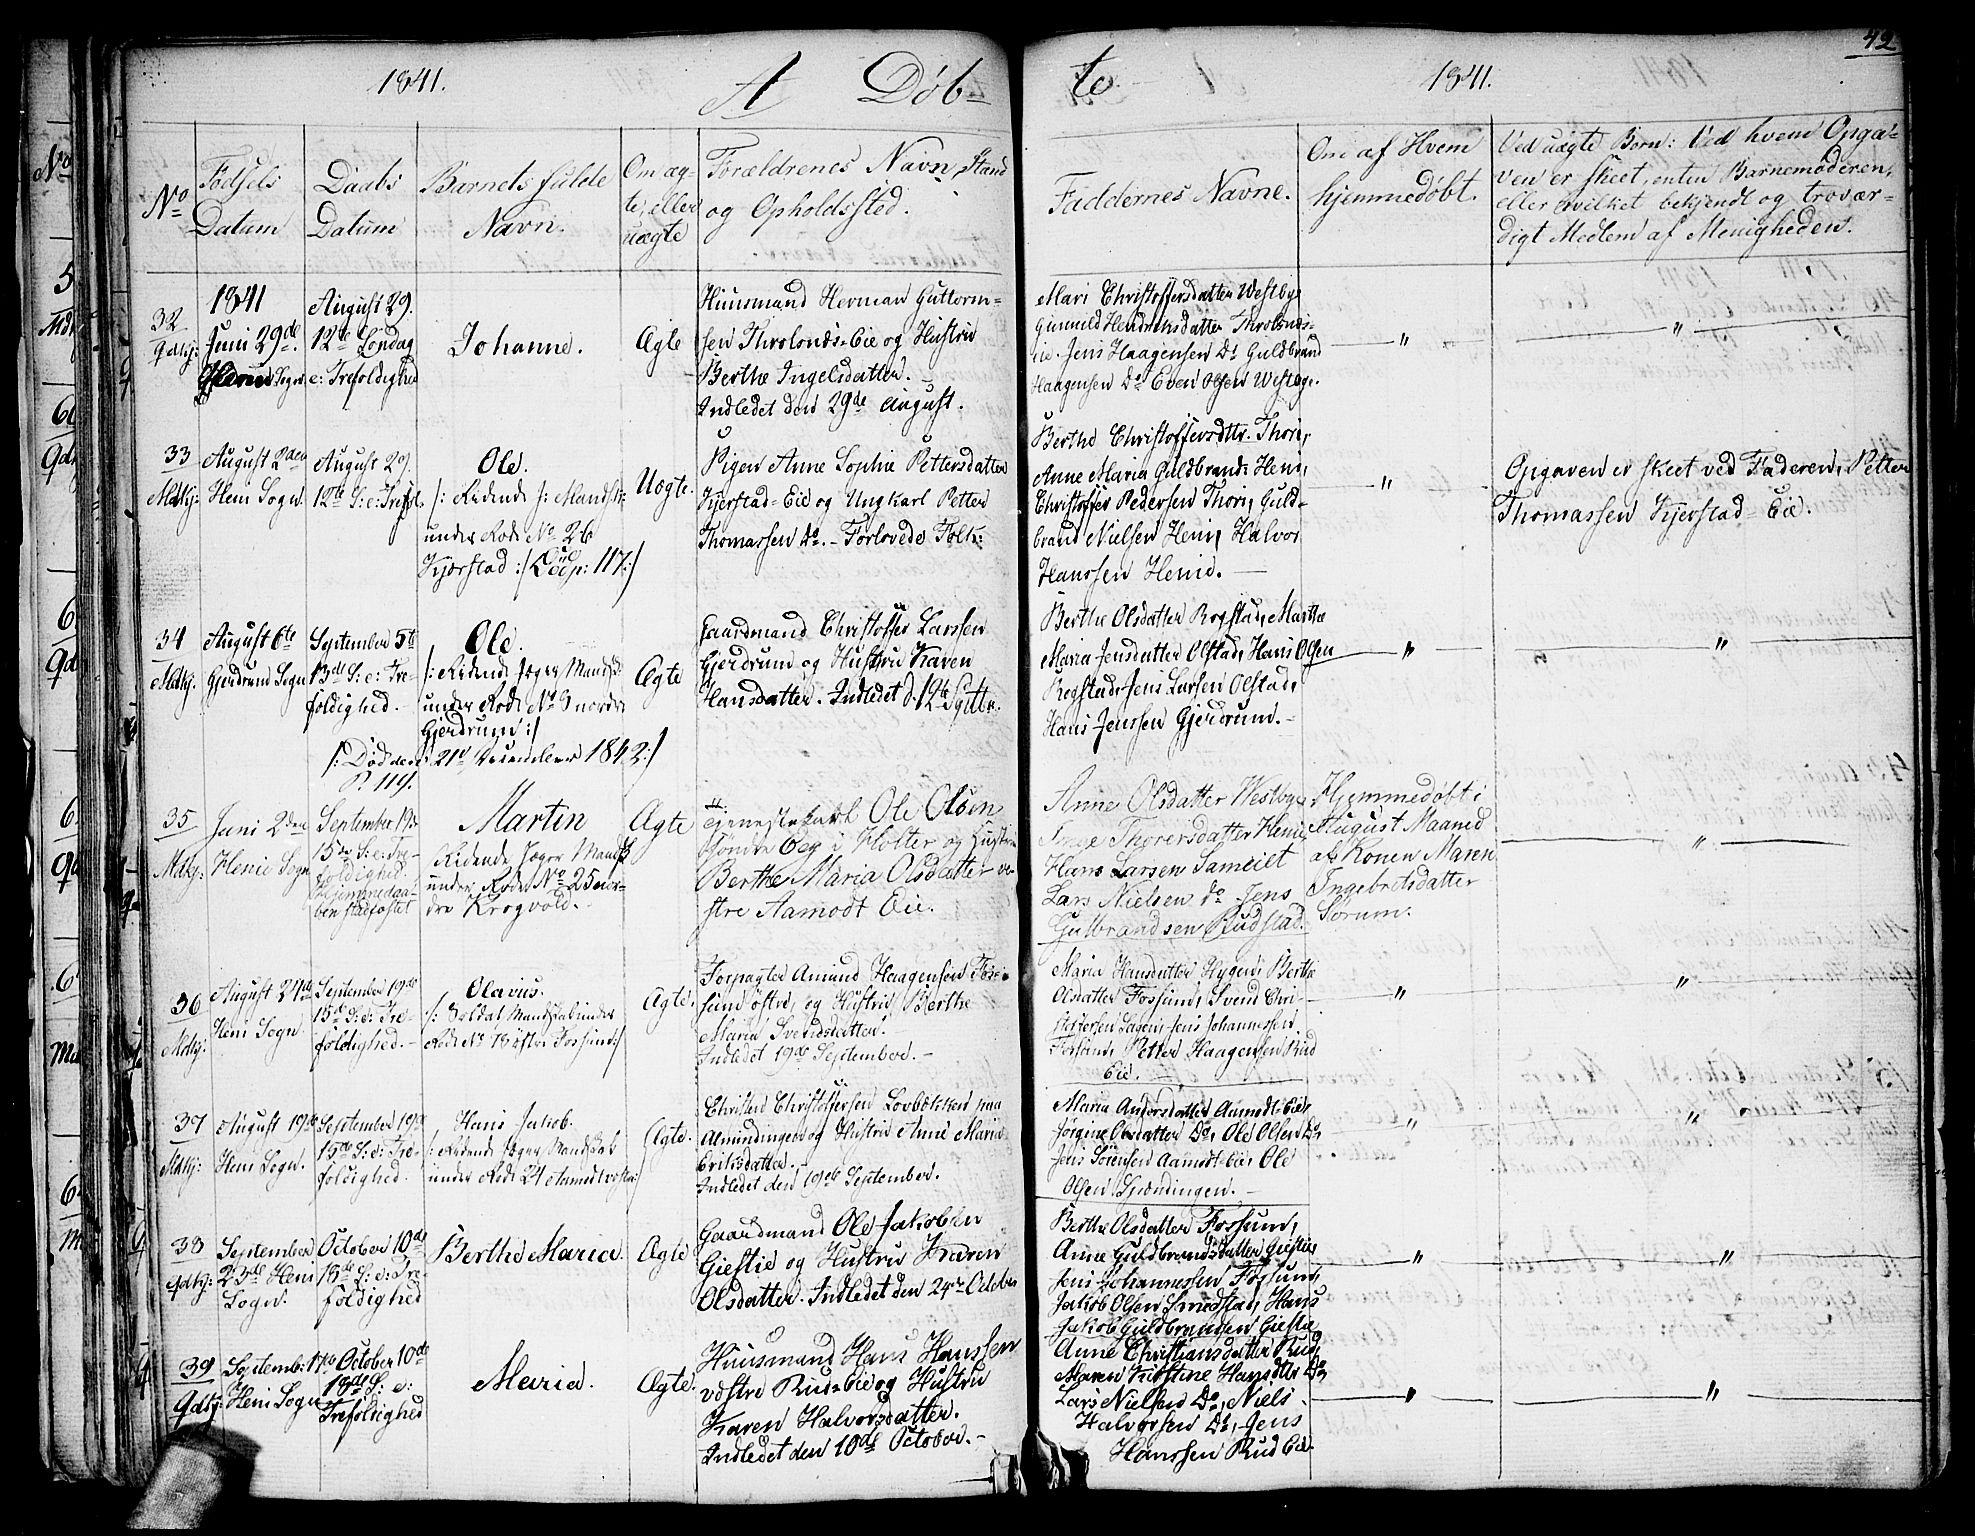 42
1841.
A Döb-
te
1841.
No
Födsels
Datum
Daabs
Datum
Barnets fulde
Navn.
Om æg-
te, eller
uægte
Forældrenes Navn, Stand
og Opholdssted.
Faddernes Navne.
Om af Hvem
hjemmedöbt.
Ved uægte Börn: Ved hvem Opga-
ven er skeet, enten Barnemoderen,
eller hvilket bekjendt og trovær-
digt Medlem af Menigheden.
32
Qdkj:
1841
Juni 29de
Sogn
August 29.
12te Söndag
e: Trefoldighed
Johanne.
Ægte
Huusmand Herman Guttorm-
sen Throlonds-Eie og Hustru
Berthe Ingelsdatter.
Indledet den 29de August.
Mari Christoffersdatter Westbye
Gunnild Hendriksdatter Throlonds-
eie. Jens Haagensen Do Guldbrand
Haagensen Do Even Olsen Westbye.
33
Mdkj:
August 2den
Heni Sogn.
August 29.
12te S: e: Trefol.
Ole.
/: Ridende J: Mandsk:
under Rode No 26
Kjærstad :/ Död p: 117:/
Uægte.
Pigen Anne Sophie Pettersdatter
Kjerstad-Eie og Ungkarl Petter
Thomassen Do. - Forlovede Folk:
Berthe Christoffersdttr. Thori,
Anne Maria Guldbrands Heni,
Christoffer Pedersen Thori, Guld-
brand Nielsen Heni, Halvor
Hanssen Henie.
Opgaven er skeet ved Faderen, Petter
Thomassen Kjerstad-Eie.
34
Mdkj:
August 6te
Gjerdrum Sogn
September 5te
13de S: e: Tre-
foldighed.
Ole.
/: Ridende Jæger Mandsk:
under Rode No 9 nordre
Gjerdrum :/
/: Död den 21 December 1842:/
P. 119.
Ægte
Gaardmand Christoffer Larssen
Gjerdrum og Hustru Karen
Hansdatter. Indledet d. 12te Sptbr.
Berthe Olsdatter Rogstad, Marthe
Maria Jensdatter Olstad, Hans Olsen
Rogstad, Jens Larsen Olstad,
Hans Jenssen Gjerdrum.
35
Mdkj:
Juni 2den
Henie Sogn
September 19de
15de S: e: Tre-
foldighed.
Hjemmedaa-
ben stadfæstet
Martin
Ridende Jæger Mandsk
under Rode No 25 nor-
dre Krogvold.
Ægte
Tjenestekarl Ole Olsen
söndre Eeg i Holter og Hustrue
Berthe Maria Olsdatter ve-
stre Aamodt Eie.
Anne Olsdatter Westbye
Anne Thorersdatter Henie
Hans Larsen Sameiet
Lars Nielsen do Jens
Gulbrandsen Rudstad.
Hjemmedöbt i
August Maaned
af Konen Maren
Ingebretsdatter
Sörum.
36
Mdkj:
August 24de
Heni Sogn
September 19de
15de S: e: Tre-
foldighed.
Olavus.
/: Soldat Mandskab under
Rode No 18 östre Fossum :/
Ægte.
Forpagter Amund Haagensen Fos-
sum östre, og Hustru Berthe
Maria Svendsdatter.
Indledet 19de September.
Maria Hansdatter Hygen, Berthe
Olsdatter Fossum, Svend Chri-
stoffersen Jens Johannessen
Fossum, Petter Haagensen Rud
Eie.
37
Mdkj:
August 19de
Heni Sogn.
September 19de
15de S: e: Tre-
foldighed.
Hans Jakob.
/: Ridende Jæger Mandskab
under Rode 24 Aamodt vestre :/
Ægte.
Christen Christoffersen Lovbækken paa
Almindingen og Hustru Anne Maria
Eriksdatter.
Indledet den 19de September.
Maria Andersdatter Aamodt-Eie,
Jörgine Olsdatter Do, Ole Olsen Do,
Jens Sörensen Aamodt-Eie, Ole
Olsen Sprændingen.
38
Qdkj:
September
23de Heni
Sogn.
October 10de
18de S: e: Tre-
foldighed
Berthe Maria.
Ægte
Gaardmand Ole Jakobsen
Giestie og Hustru Karen
Olsdatter. Indledet den 24de October
Berthe Olsdatter Fossum,
Anne Guldbrandsdatter Giestie,
Jens Johannessen Fossum,
Jakob Olsen Smedstad, Hans
Jakob Guldbrandsen Giestie
39
Qdkj:
Septemb: 1ste
Heni Sogn
October 10de
18de S: e:
Trefoldighed
Maria.
Ægte.
Huusmand Hans Hanssen
vestre Rud-Eie og Hustru
Karen Halvorsdatter.
Indledet den 10de October.
Anne Christiansdatter Rud,
Maren Kirstine Hansdtter Do
Lars Nielsen Do, Niels
Halvorsen Do, Jens
Hanssen Rud Eie